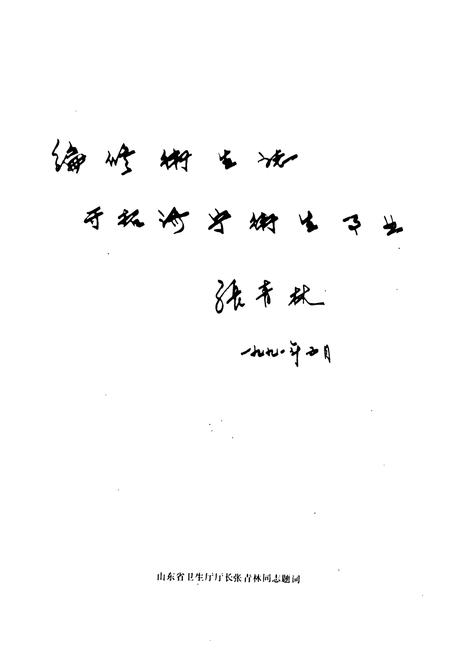 编修衛生志
开拓济宁衛生事业
張青林
一九九一年五月
山东省卫生厅厅长张青林同志题词